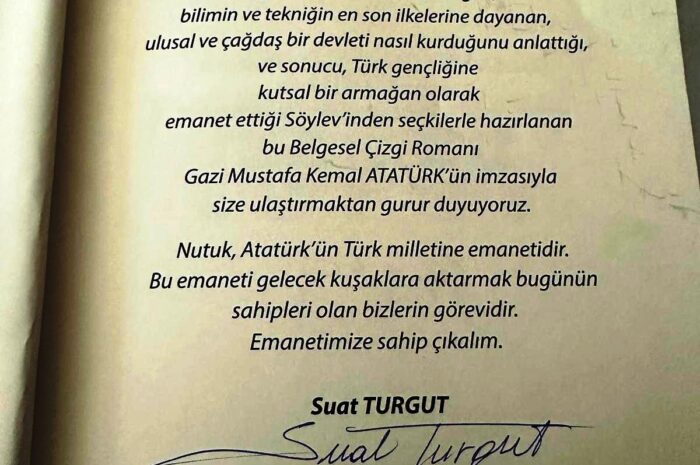 bilimin ve tekniğin en son ilkelerine dayanan,
ulusal ve çağdaş bir devleti nasıl kurduğunu anlattığı,
ve sonucu, Türk gençliğine
kutsal bir armağan olarak
emanet ettiği Söylev'inden seçkilerle hazırlanan
bu Belgesel Çizgi Romanı
Gazi Mustafa Kemal ATATÜRK'ün imzasıyla
size ulaştırmaktan gurur duyuyoruz.
Nutuk, Atatürk'ün Türk milletine emanetidir.
Bu emaneti gelecek kuşaklara aktarmak bugünün
sahipleri olan bizlerin görevidir.
Emanetimize sahip çıkalım.
Suat TURGUT
Suat Turgut